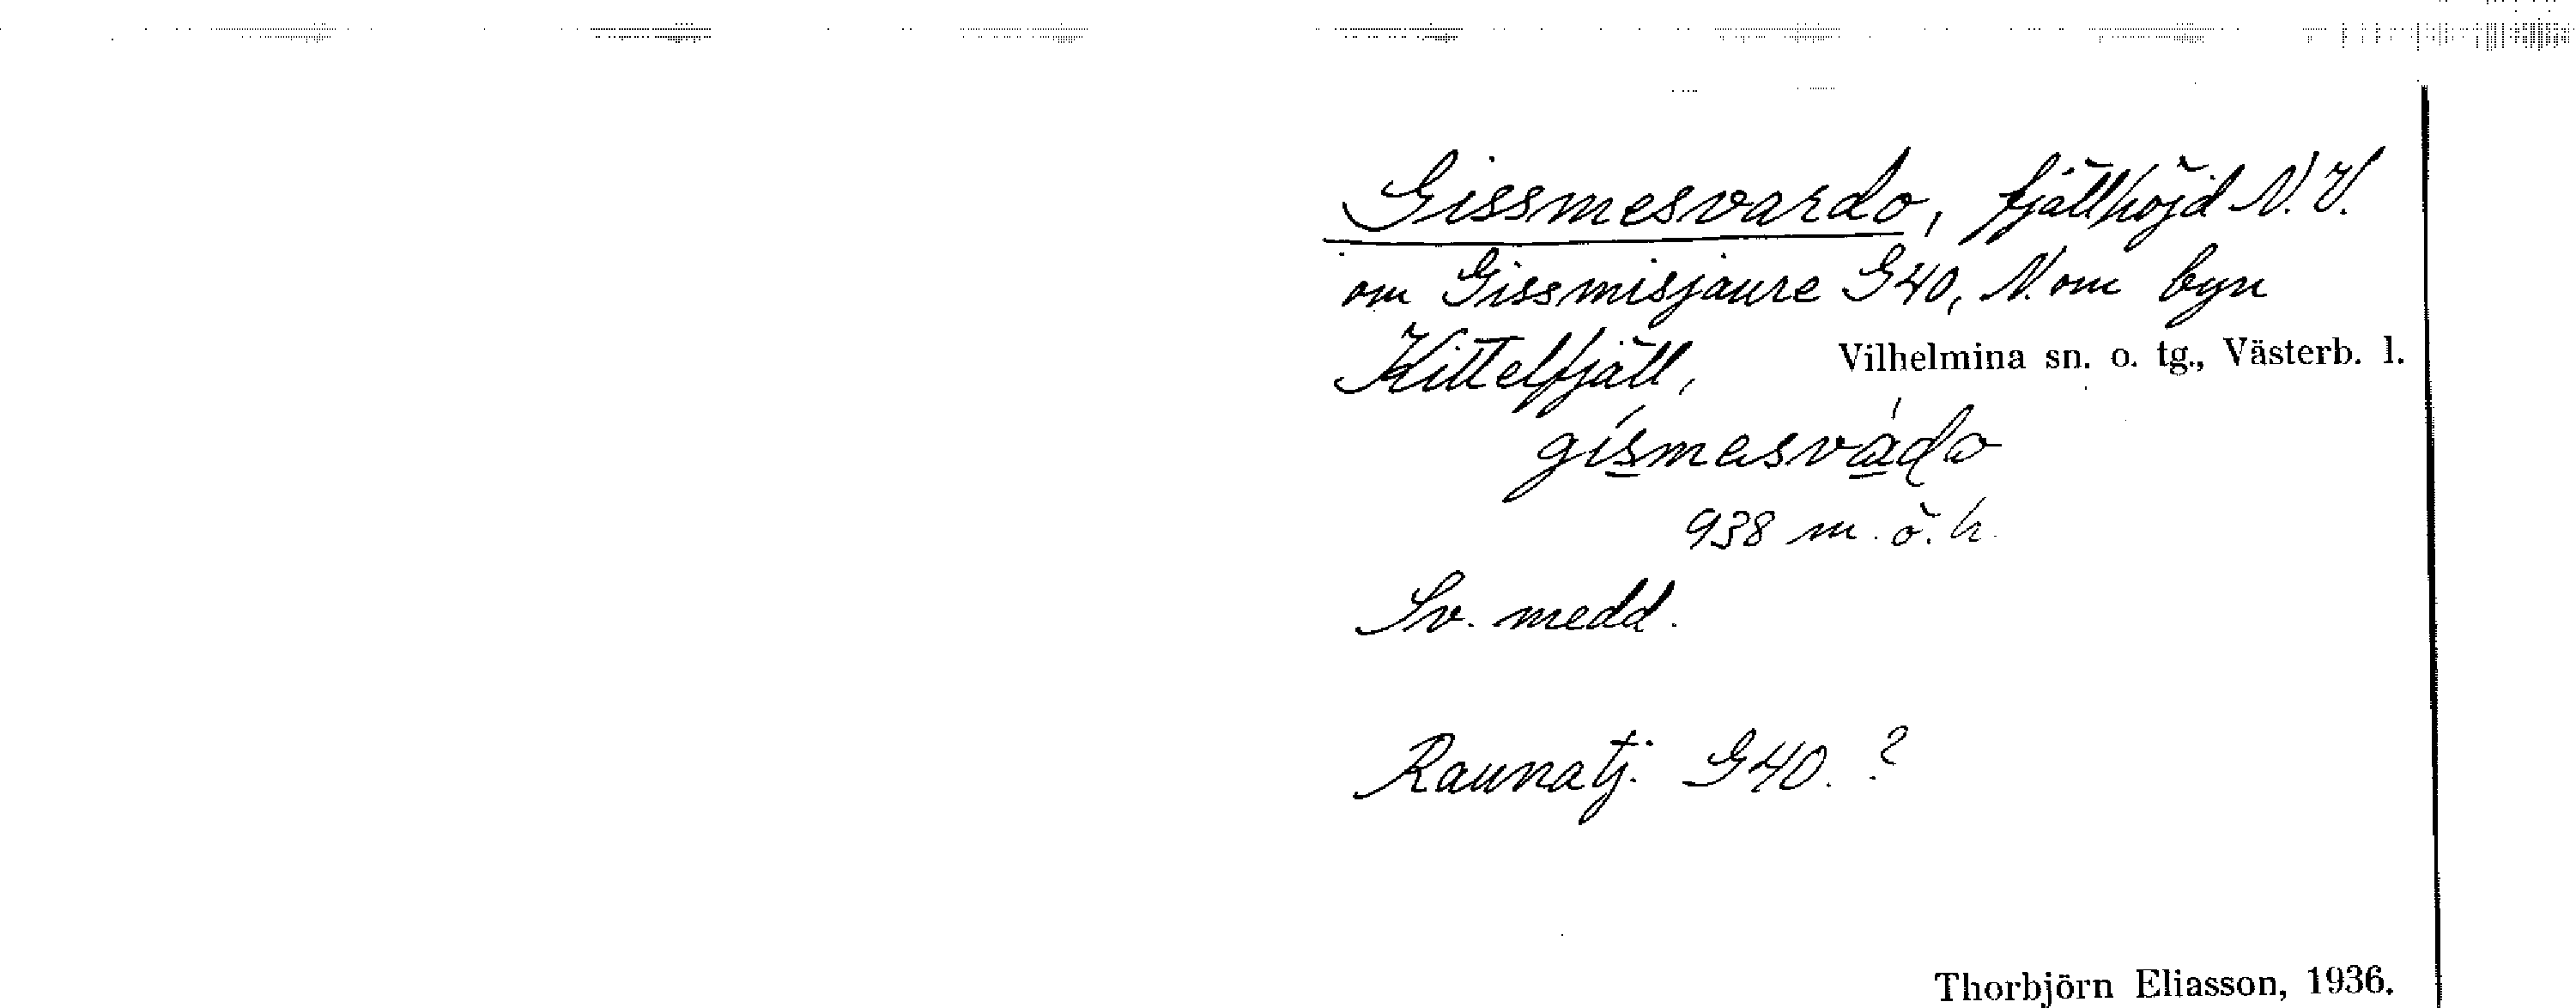 Gissmesvardo, fjällhöjd N.V.
om Gissmisjaure G40, N. om byn
Kittelfjäll, Vilhelmina sn. o. tg., Västerb. l.
gísmesvádo
938 m. ö. h.
Sv. medd.
Raunatj. G40. ?
Thorbjörn Eliasson, 1936.